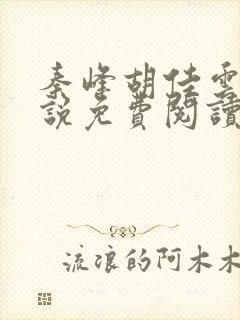 秦峰胡佳雲
說免費閱讀
流浪的阿木木